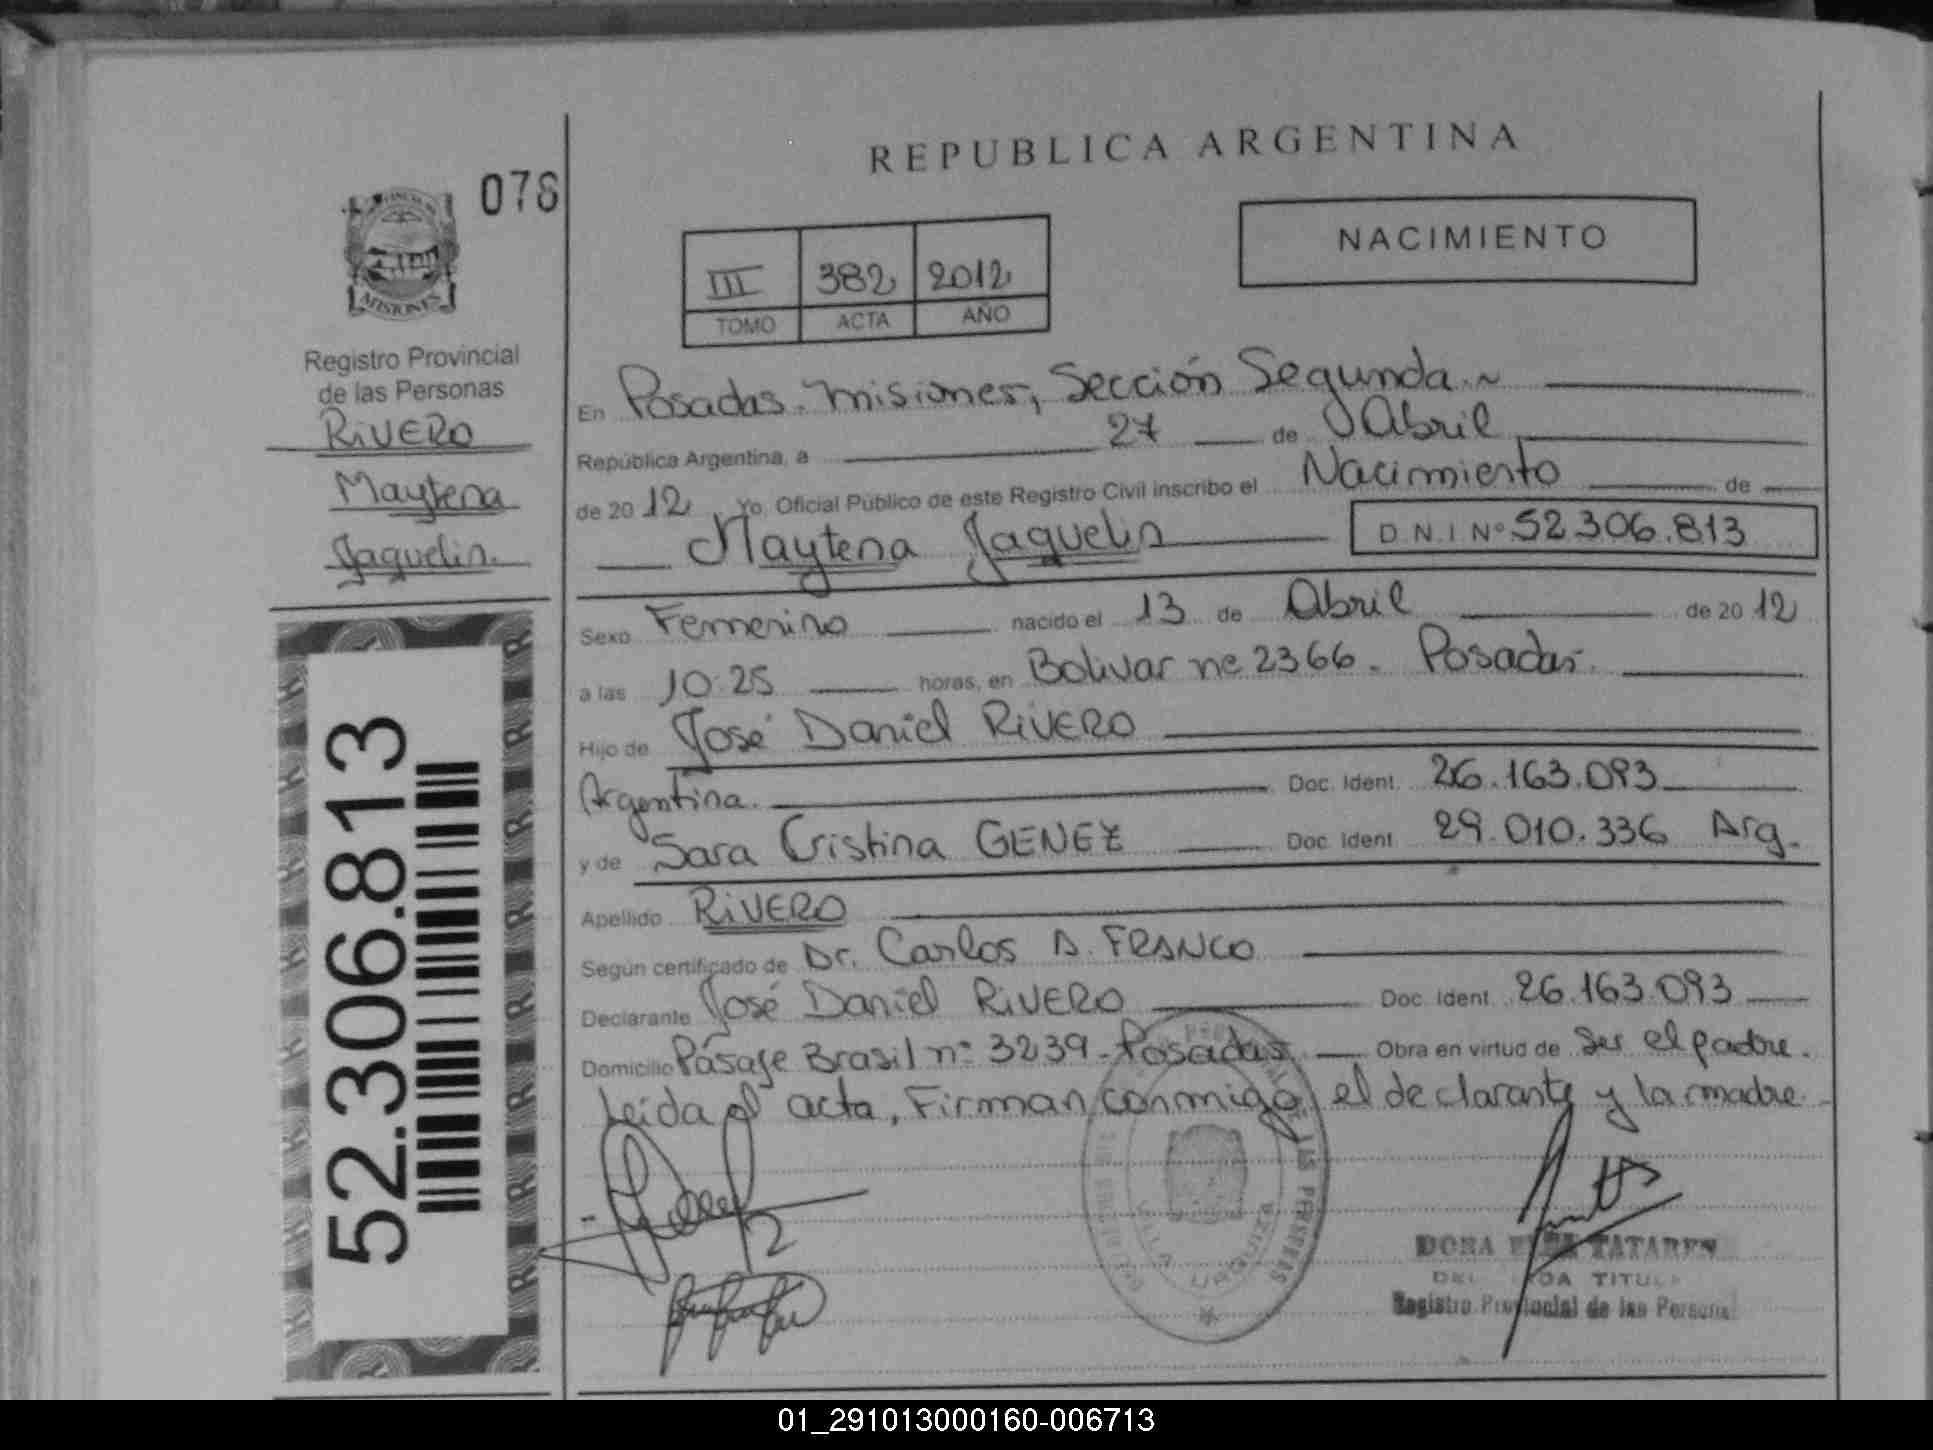 REPUBLICA ARGENTINA
078
NACIMIENTO
III 382 2012
TOMO ACTA AÑO
MISIONES
Registro Provincial
de las Personas
RIVERO
Maytena
Jaquelin.
52.306.813
En Posadas. Misiones, Sección Segunda.~
República Argentina, a 27 de Abril
de 2012 Yo, Oficial Público de este Registro Civil inscribo el Nacimiento de
Maytena Jaquelin D.N.I Nº 52.306.813
Sexo Femenino nacido el 13 de Abril de 2012
a las 10:25 horas, en Bolivar nº 2366. Posadas.
Hijo de José Daniel RIVERO
Argentina. Doc. Ident. 26.163.093
y de Sara Cristina GENEZ Doc. Ident. 29.010.336 Arg.
Apellido RIVERO
Según certificado de Dr. Carlos A. FRANCO
Declarante José Daniel RIVERO Doc. Ident. 26.163.093
Domicilio Pásaje Brasil nº 3239 - Posadas Obra en virtud de Ser el padre.
Leida el acta, Firman conmigo el declarante y la madre.
VILLA URQUIZA
DE LAS PERSONAS
DORA TATAREN
TITUL
Registro Provincial de las Personas
01_291013000160-006713